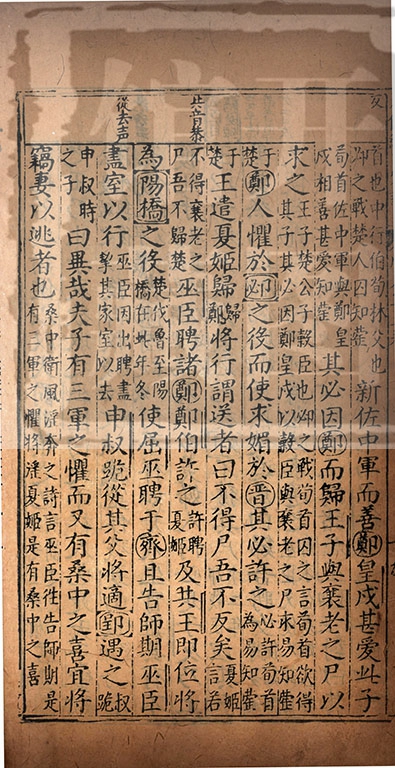 反
共音恭
從去声
首也中行伯荀林父也
邲之戰楚人囚知罃
新佐中軍而善鄭皇戌甚愛此子
荀首佐中軍與鄭皇
戌相善甚愛知罃
其必因鄭而歸王子與襄老之尸以
求之
王子楚公子榖臣也邲之戰荀首囚之言荀首欲得
其子其必因鄭皇戌以穀臣與襄老之尸求易知罃
于
楚
鄭人懼於邲之役而使求媚於晉其必許之
必許荀首
為易知罃
于
楚
王遣夏姬歸
歸
鄭
將行謂送者曰不得尸吾不反矣
夏姬
言若
不得襄老之
尸吾不歸楚
巫臣聘諸鄭鄭伯許之
許聘
夏姬
及共王即位將
為陽橋之役
楚伐魯至陽
橋在此年冬
使屈巫聘于齊且告師期巫臣
盡室以行
巫臣因出聘盡
挈其家室以去
申叔跪從其父將適郢遇之
叔
跪
申叔時
之子
曰異哉夫子有三軍之懼而又有桑中之喜宜將
竊妻以逃者也
桑中衛風淫奔之詩言巫臣徃告師期是
有三軍之懼將淫夏姬是有桑中之喜